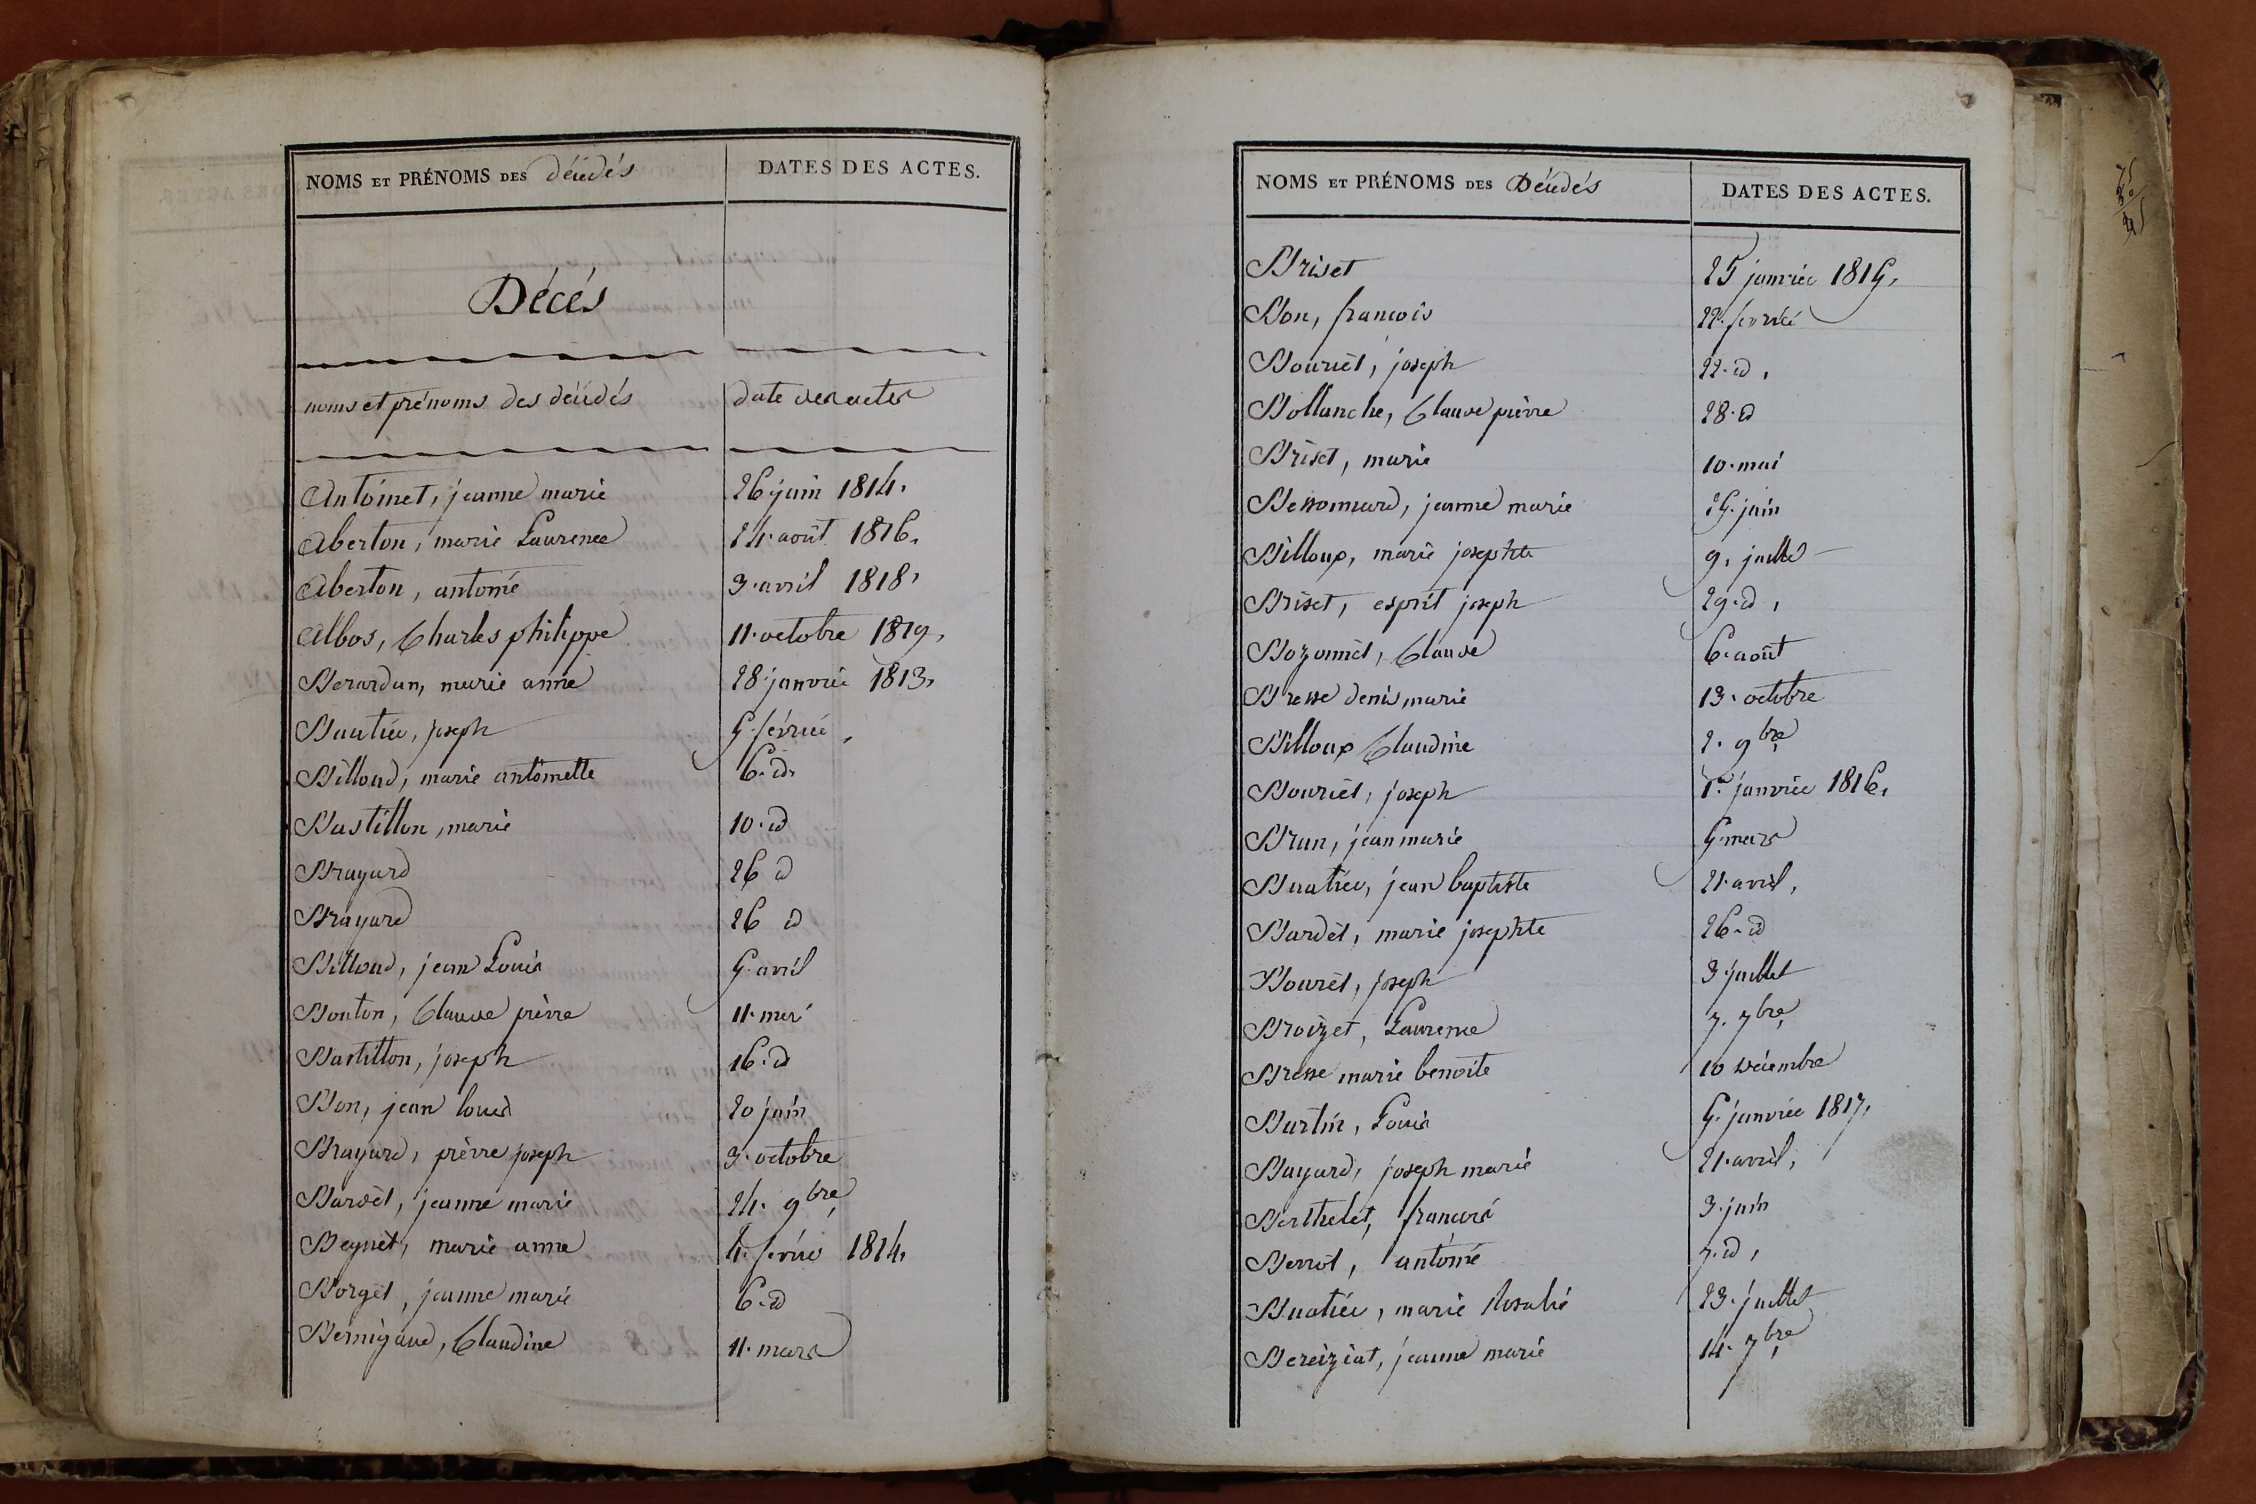 NOMS ET PRÉNOMS DES Décédés DATES DES ACTES.
Décés
noms et prénoms des décédés date des actes
Antoinet, jeanne marie 26 juin 1814.
Aberton, marie Laurence 24. août 1816.
Aberton, antoine 3. avril 1818.
Albos, Charles philippe 11. octobre 1819.
Berardan, marie anne 28. janvier 1813.
Buatier, joseph 5. février
Billoud, marie antoinette 6. id.
Bastillon, marie 10. id
Brayard 26 id
Brayard 26 id
Billoud, jean Louis 5. avril
Bouton, Claude pierre 11. mai
Bastillon, joseph 16. id
Bon, jean louis 20 juin
Brayard, pierre joseph 3. octobre
Bardet, jeanne marie 24. 9bre,
Beynet, marie anne 4. février 1814.
Borget, jeanne marie 6. id
Bernigaud, Claudine 11. mars
NOMS ET PRÉNOMS DES Décédés DATES DES ACTES.
Briset 25 janvier 1815.
Bon, francois 22. fevrier
Bouriet, joseph 22. id,
Bollanche, Claude pierre 28. id
Briset, marie 10. mai
Bessonnard, jeanne marie 25. juin
Billoup, marie josephte 9, juillet
Briset, esprit joseph 29. id,
Bozonnet, Claude 6. août
Bresse denis marie 13. octobre
Billoup Claudine 2. 9bre,
Bouriet, joseph 1er. janvier 1816.
Brun, jean marie 5. mars
Buatier, jean baptiste 21. avril,
Bardet, marie josephte 26. id
Bouret, joseph 3. juillet
Broizet, Laurence 7. 7bre,
Bresse marie benoite 10 décembre
Burtin, Louis 5. janvier 1817.
Bayard, joseph marie 21. avril,
Berthelet, francois 3. juin
Berrot, antoine 7. id,
Buatier, marie Rosalie 23. juillet
Bereiziat, jeanne marie 14. 7bre,